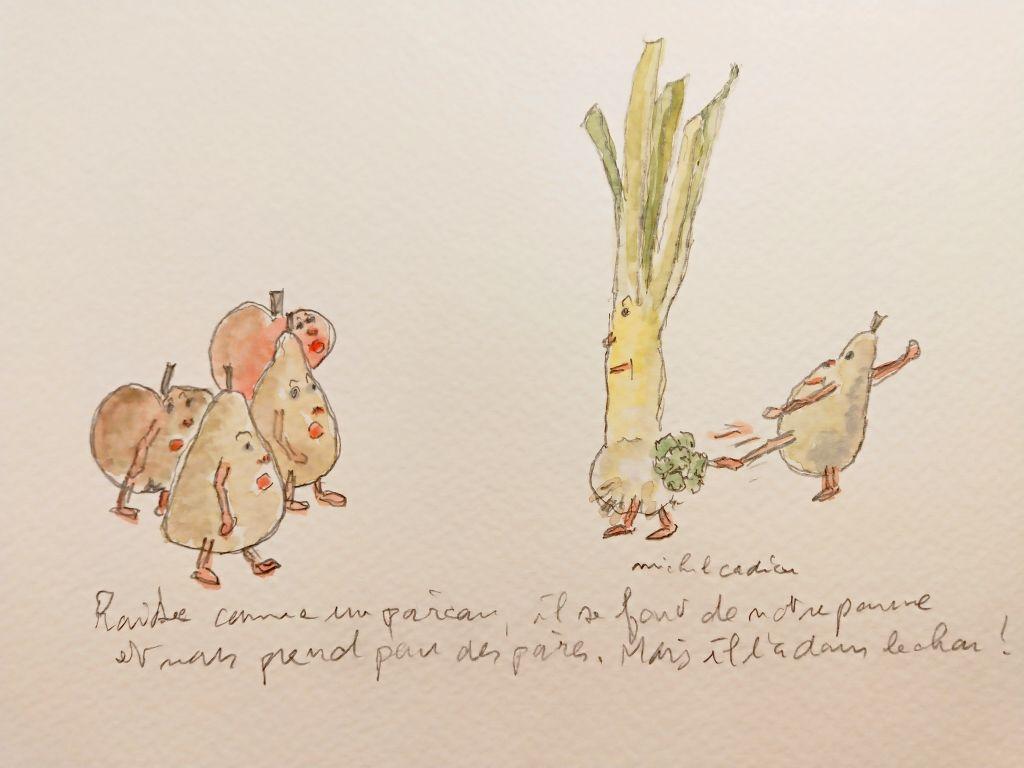 michel cadiou
Raide comme un poireau, il se fout de notre pomme
et nous prend pour des poires. Mais il l'a dans le chou !